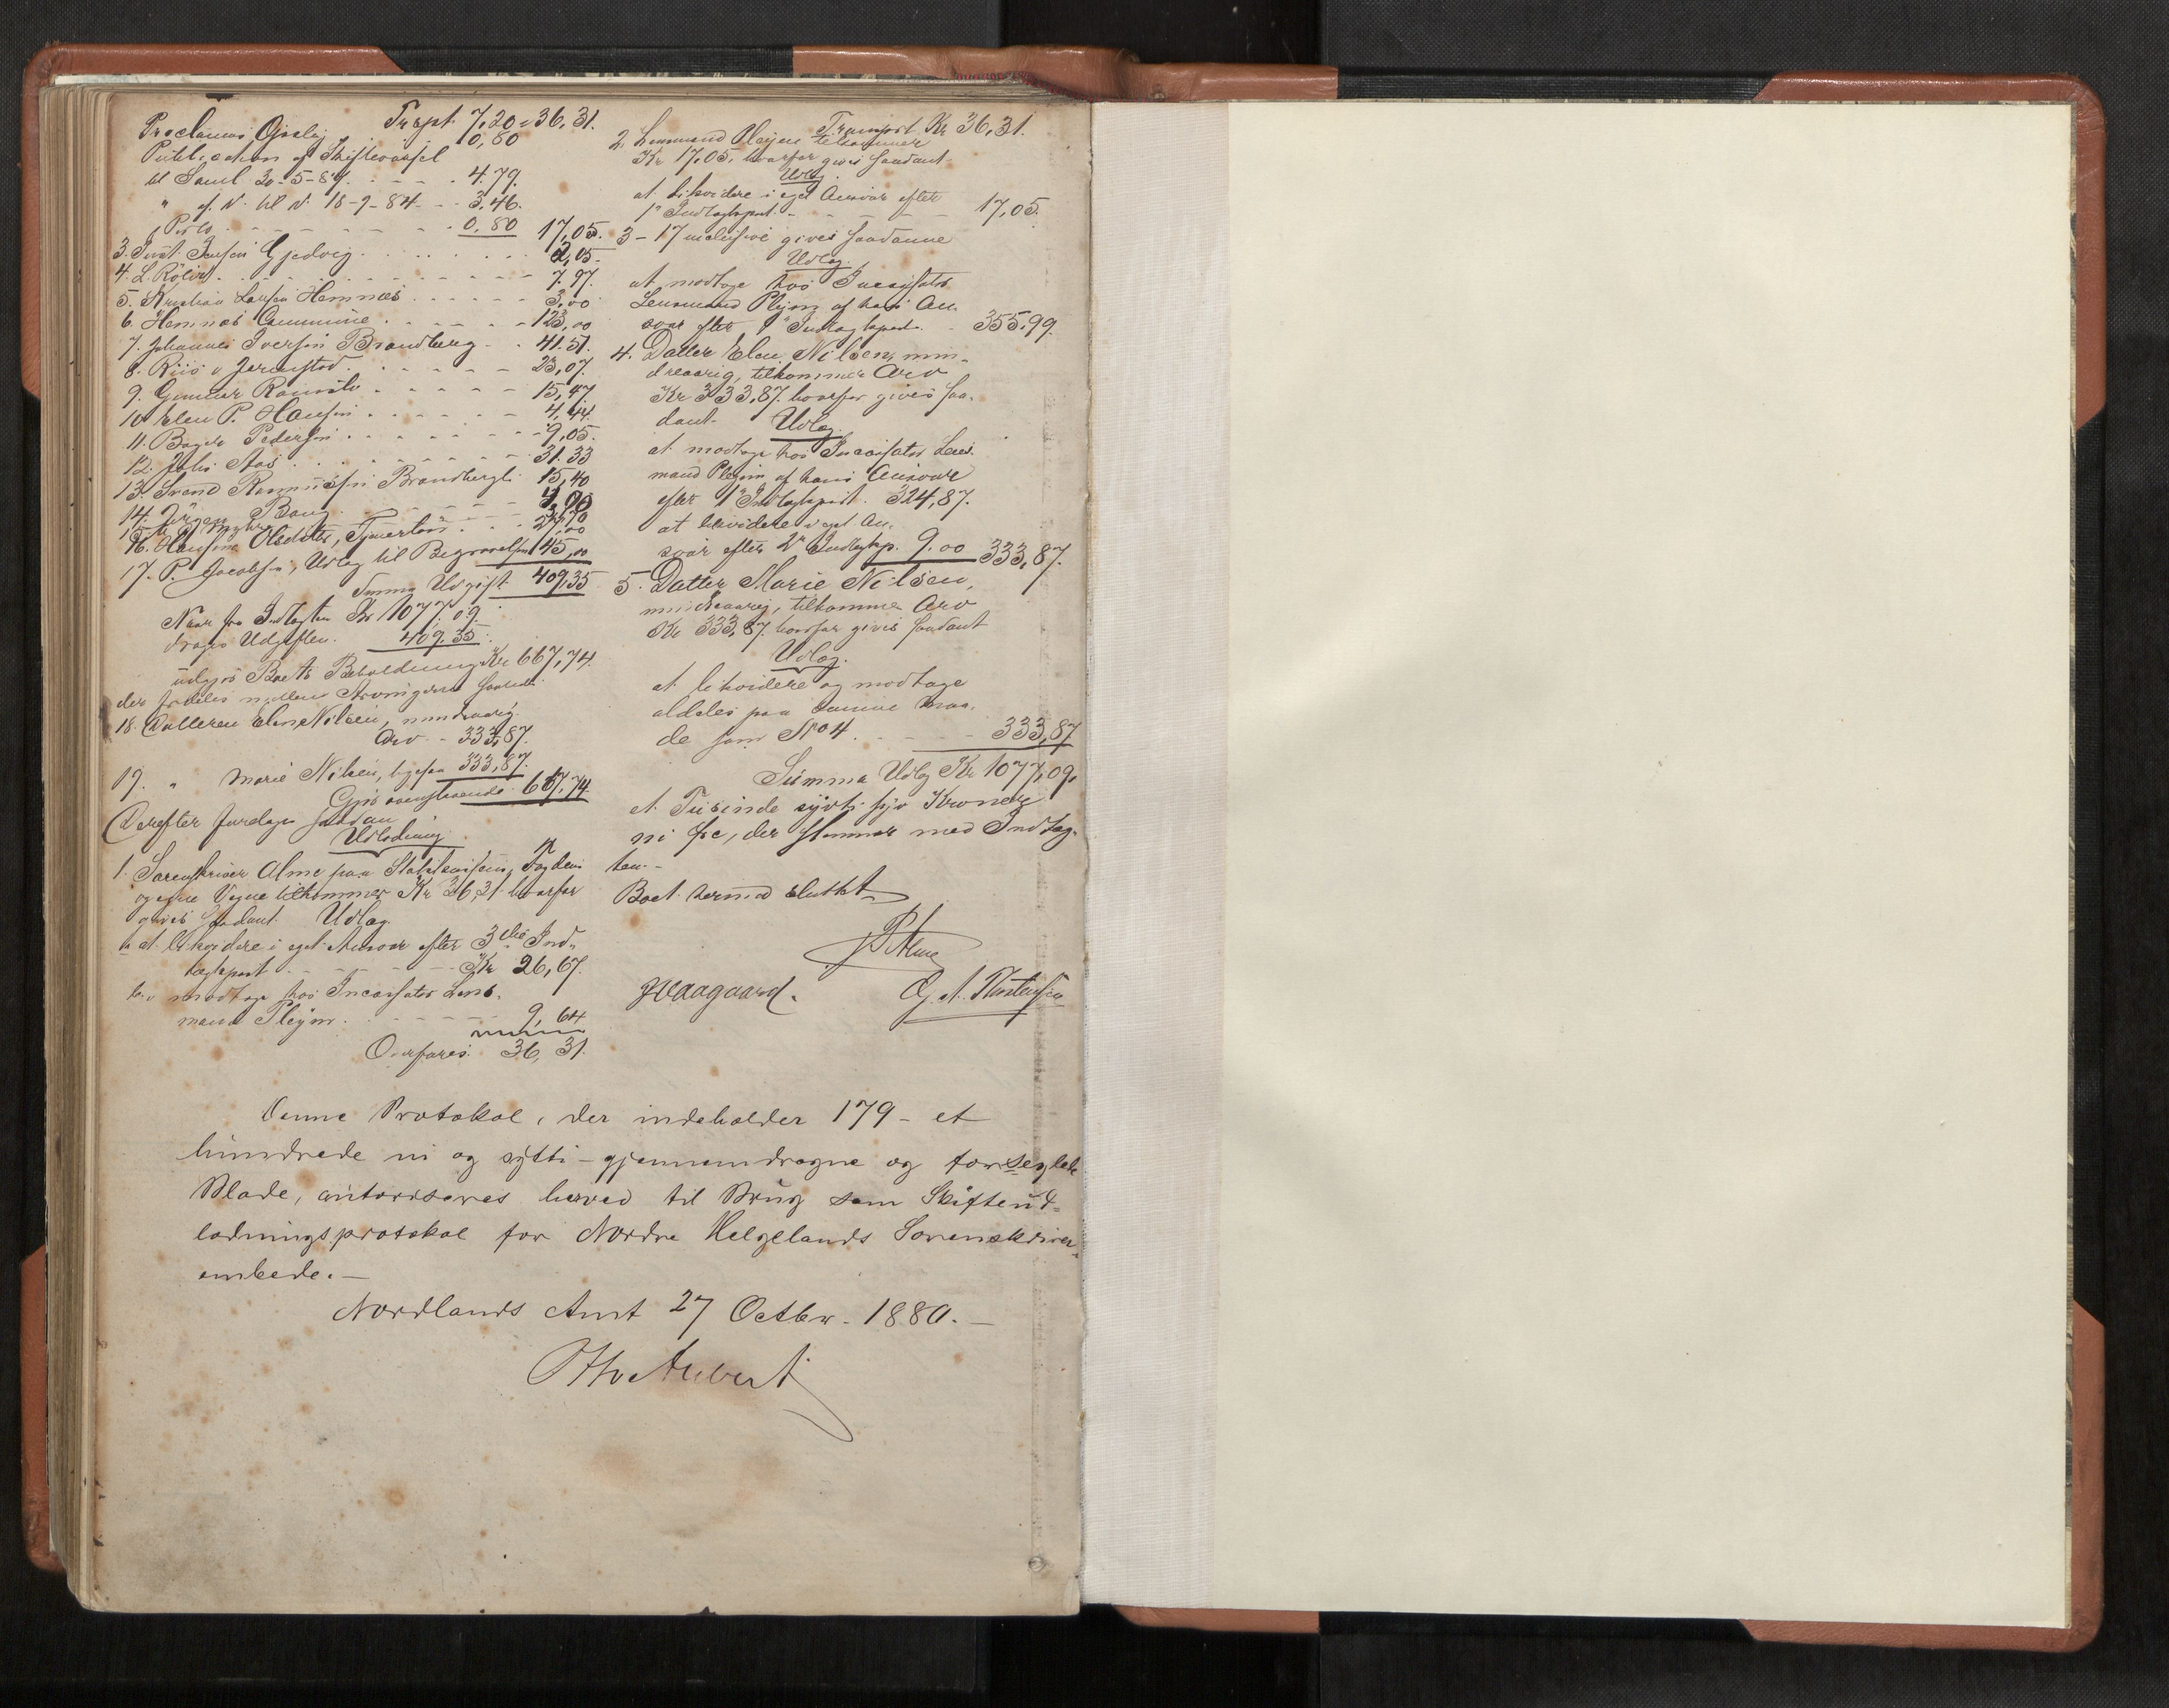 Trspt. 7,20 = 36,31.
Proclamas Opslag 0,80
Publication af Skiftesamtal
til Saml. 20-5-84 - - - 4.79.
" af N. til N. 18-9-84 - - 3,46.
Porto - - - - 0,80 17,05.
3. Jensen Gjedvig 2,05.
4. L. Rölvs 7.97.
5. Kristian Larsen Hemnæs 3,00
6. Hemnæs Commune 123,00
7. Johannes Iversen Brandberg 41.51.
8. Riis v Jernestad 23,07.
9. Gunnar 15,47.
10 Elen P. Hansen 4,44.
11. Pedersen 9,05.
12. John Aas 31.33
13. Svend Rasmussen Brandbergli 15,40
14. Jörgen Bang
16. Hansine
17. P. Jacobsen, Udlæg til Begravelsen 45,00
Summa Udgift 409,35
Naar fra Indtægten Kr 1077,09.
drages Udgiften. 409.35.
udgjør Boets Beholdning Kr 667,74.
der fordeles mellem Arvingerne saaledes
18. Datteren Elen Nilsen, mindreaarig
Arv - 333,87.
19. " Marie Nilsen, ligesaa 333,87.
Gjør ovenstaaende 667,74
Derefter foretages saadan
Udlodning.
1. Sorenskriver Alme paa Statskassens, Fogdens
og egne Vegne tilkommer Kr 36,31 hvorfor
gives saadant Udlæg.
a. at likvidere i eget Ansvar efter 3die Ind-
tægtspost - - - Kr 26,67.
b. " modtage hos Incassator Lens-
mand Pleym - - - 9,64
Overføres. 36,31.
Transport Kr 36,31.
2. Lensmand Pleym tilkommer
Kr 17,05, hvorfor gives saadant
Udlæg.
at likvidere i eget Ansvar efter
1ste Indtægtspost - - - 17,05.
3 - 17 inclusive gives saadanne
Udlæg.
at modtage hos Incassator
Lensmand Pleym af hans An-
svar efter 1ste Indtægtspost. 355,99.
4. Datter Elen Nilsen, min-
dreaarig, tilkommer Arv
Kr 333,87. hvorfor gives saa-
dant Udlæg.
at modtage hos Incassator Lens-
mand Pleym af hans Ansvar
efter 1ste Indtægtspost. 324,87.
at likvidere i eget An-
svar efter 2n Indtægtsp. 9.00 333,87.
5. Datter Marie Nilsen,
mindreaarig, tilkommer Arv
Kr 333,87. hvorfor gives saadant
Udlæg.
at likvidere og modtage
aldeles paa samme Maa-
de som No 4. - - - 333,87
Summa Udlæg Kr 1077,09.
et Tusinde sytti syv Kroner
ni Øre, der stemmer med Indtæg-
ten.-
Boet hermed sluttet
P Alme
JVaagaard. O. A. Thostensen
Denne Protokol, der indeholder 179 - et
hundrede ni og sytti - gjennemdragne og forseglede
Blade, autoriseres herved til Brug som Skifteud-
lodningsprotokol for Nordre Helgelands Sorenskriver-
embede.—
Nordlands Amt 27 Octbr. 1880.—
Otho Aubert